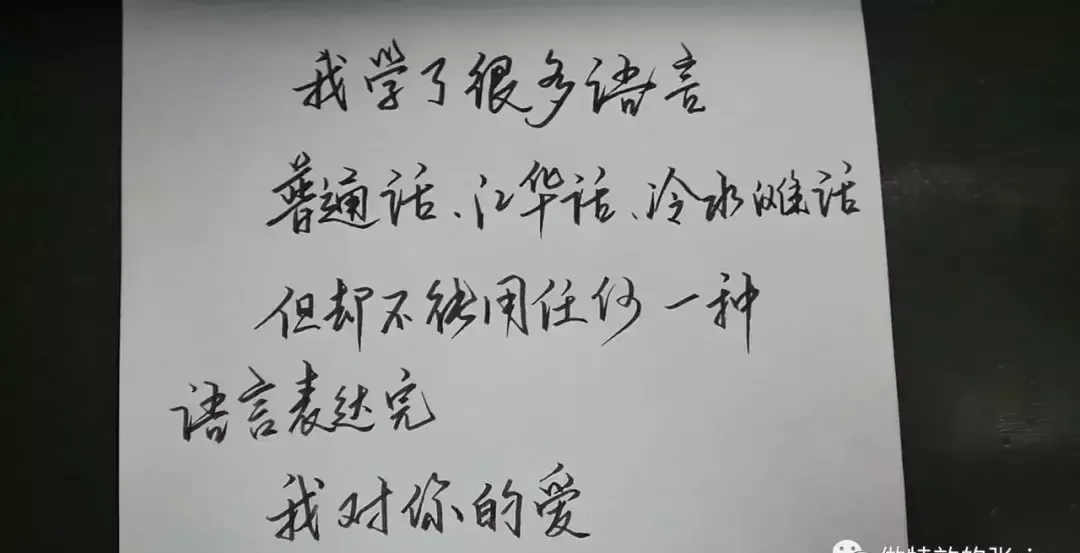 我学了很多语言
普通话、江华话、冷水滩话
但却不能用任何一种
语言表达完
我对你的爱